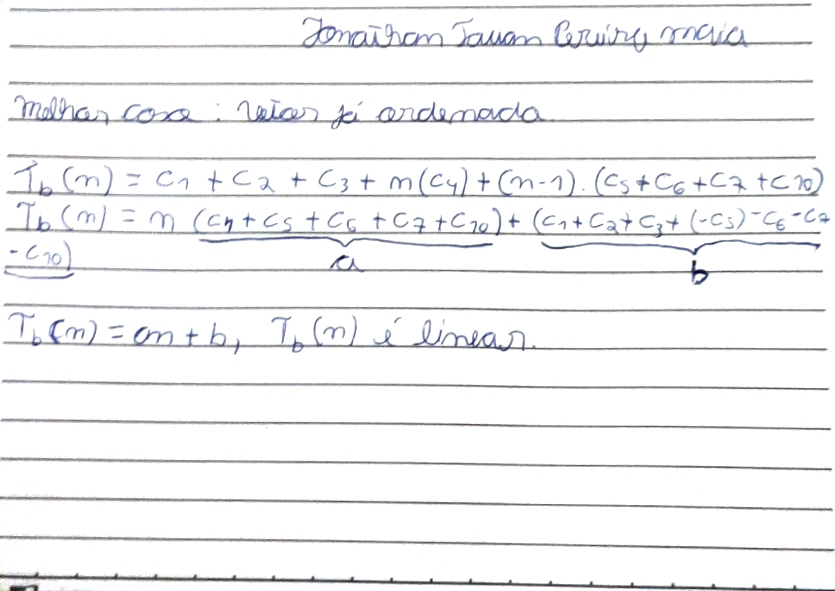 Jonathan Tauan maia
Melhor caso: vetor já ordenado.
T_b(n) = C1 + C2 + C3 + n(C4) + (n-1).(C5+C6+C7+C10)
T_b(n) = n (C4+C5+C6+C7+C10) + (C1+C2+C3+(-C5)-C6-C7
-C10)
a b
T_b(n) = an+b, T_b(n) é linear.